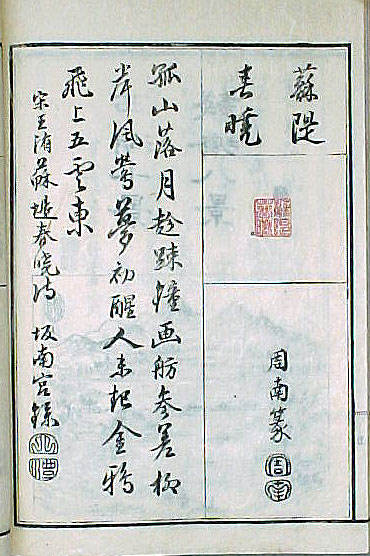 蘇隄
春曉
周南篆
周南
孤山落月趁踈鐘画舫参差柳
岸風鶯夢初醒人未起金鴉
飛上五雲東
宋王洧蘇堤春暁詩 坂南宮録